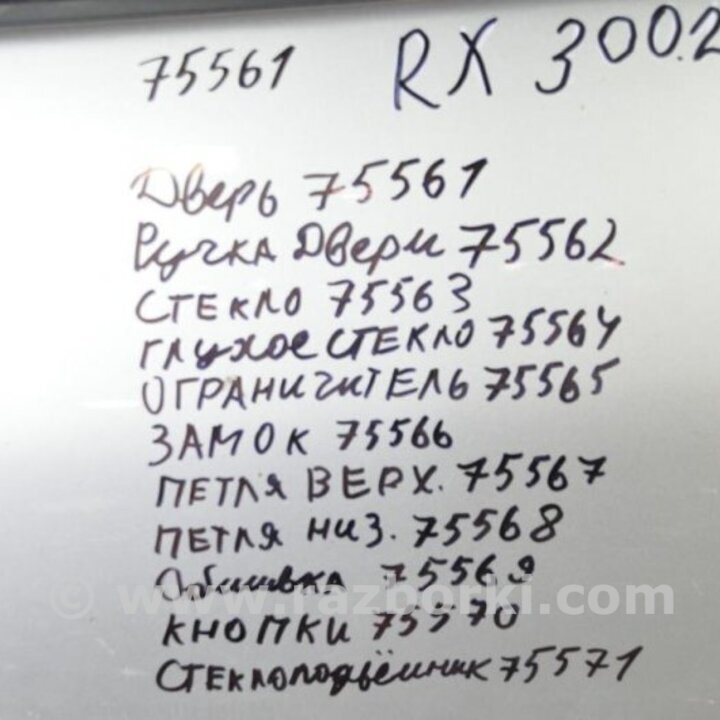 75561 RX 300.2
Дверь 75561
Ручка Двери 75562
СТЕКЛО 75563
ГЛУХОЕ СТЕКЛО 75564
ОГРАНИЧИТЕЛЬ 75565
ЗАМОК 75566
ПЕТЛЯ ВЕРХ. 75567
ПЕТЛЯ НИЗ. 75568
Обшивка 75569
© www.razborki.com
КНОПКИ 75570
Стеклоподъёмник 75571